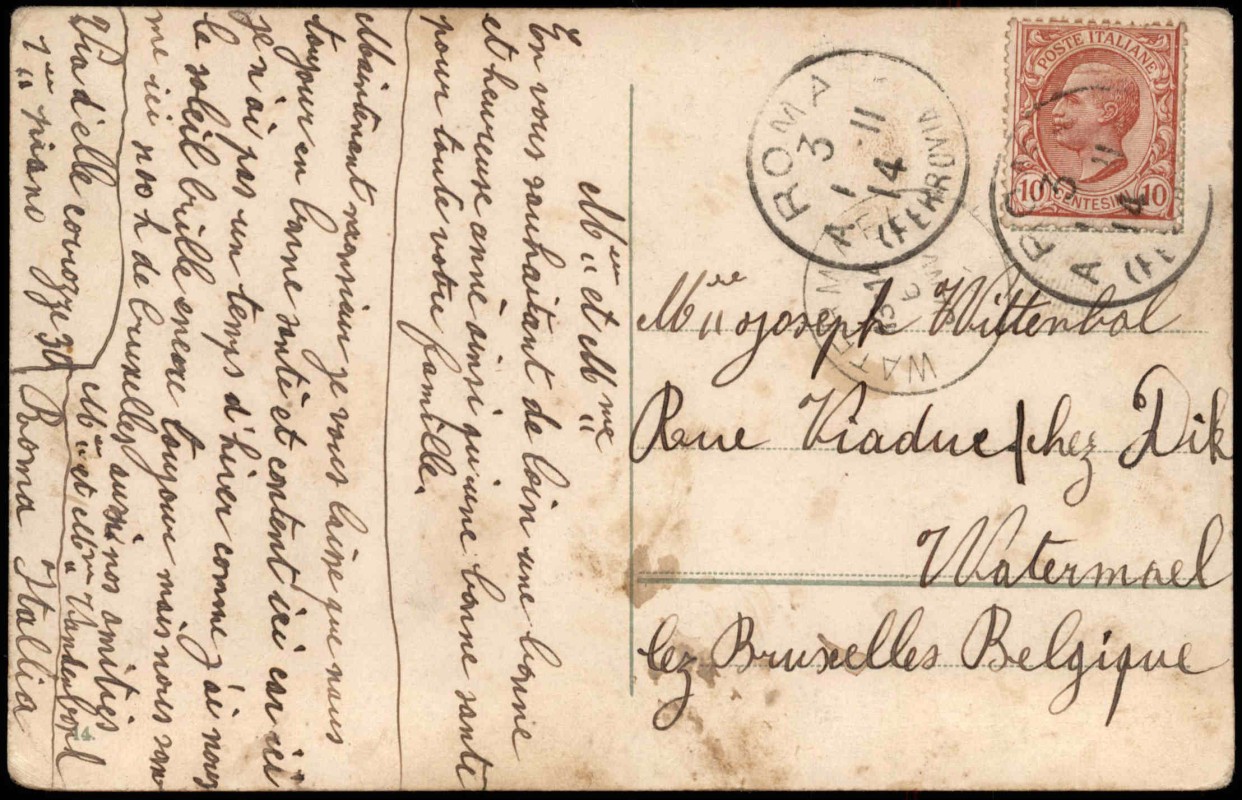 Meur et Mme
En vous sauhaitant de loin une bonne
et heureuse anné ainsi qu'une bonne sante
pour toute votre famille.
Maintenant monsieur je vous laise que nous
toujour en bonne santé et content ici car ici
je n'ai pas un temps d'hiver comme j'ai nous
le soleil brille encore toujour mais nous som
me ici no o h de bruxelles aussi nos amities
Meur et Mme Vandenborl
Via d'elle corozze 30 Roma Itallia
1er piano
14.
POSTE ITALIANE
10 CENTESIMI 10
ROMA
3 11
1 14
A (FERROVIA)
Meur Joseph Wittenbol
Rue Viaduc chez Dik
Watermael
lez Bruxelles Belgique